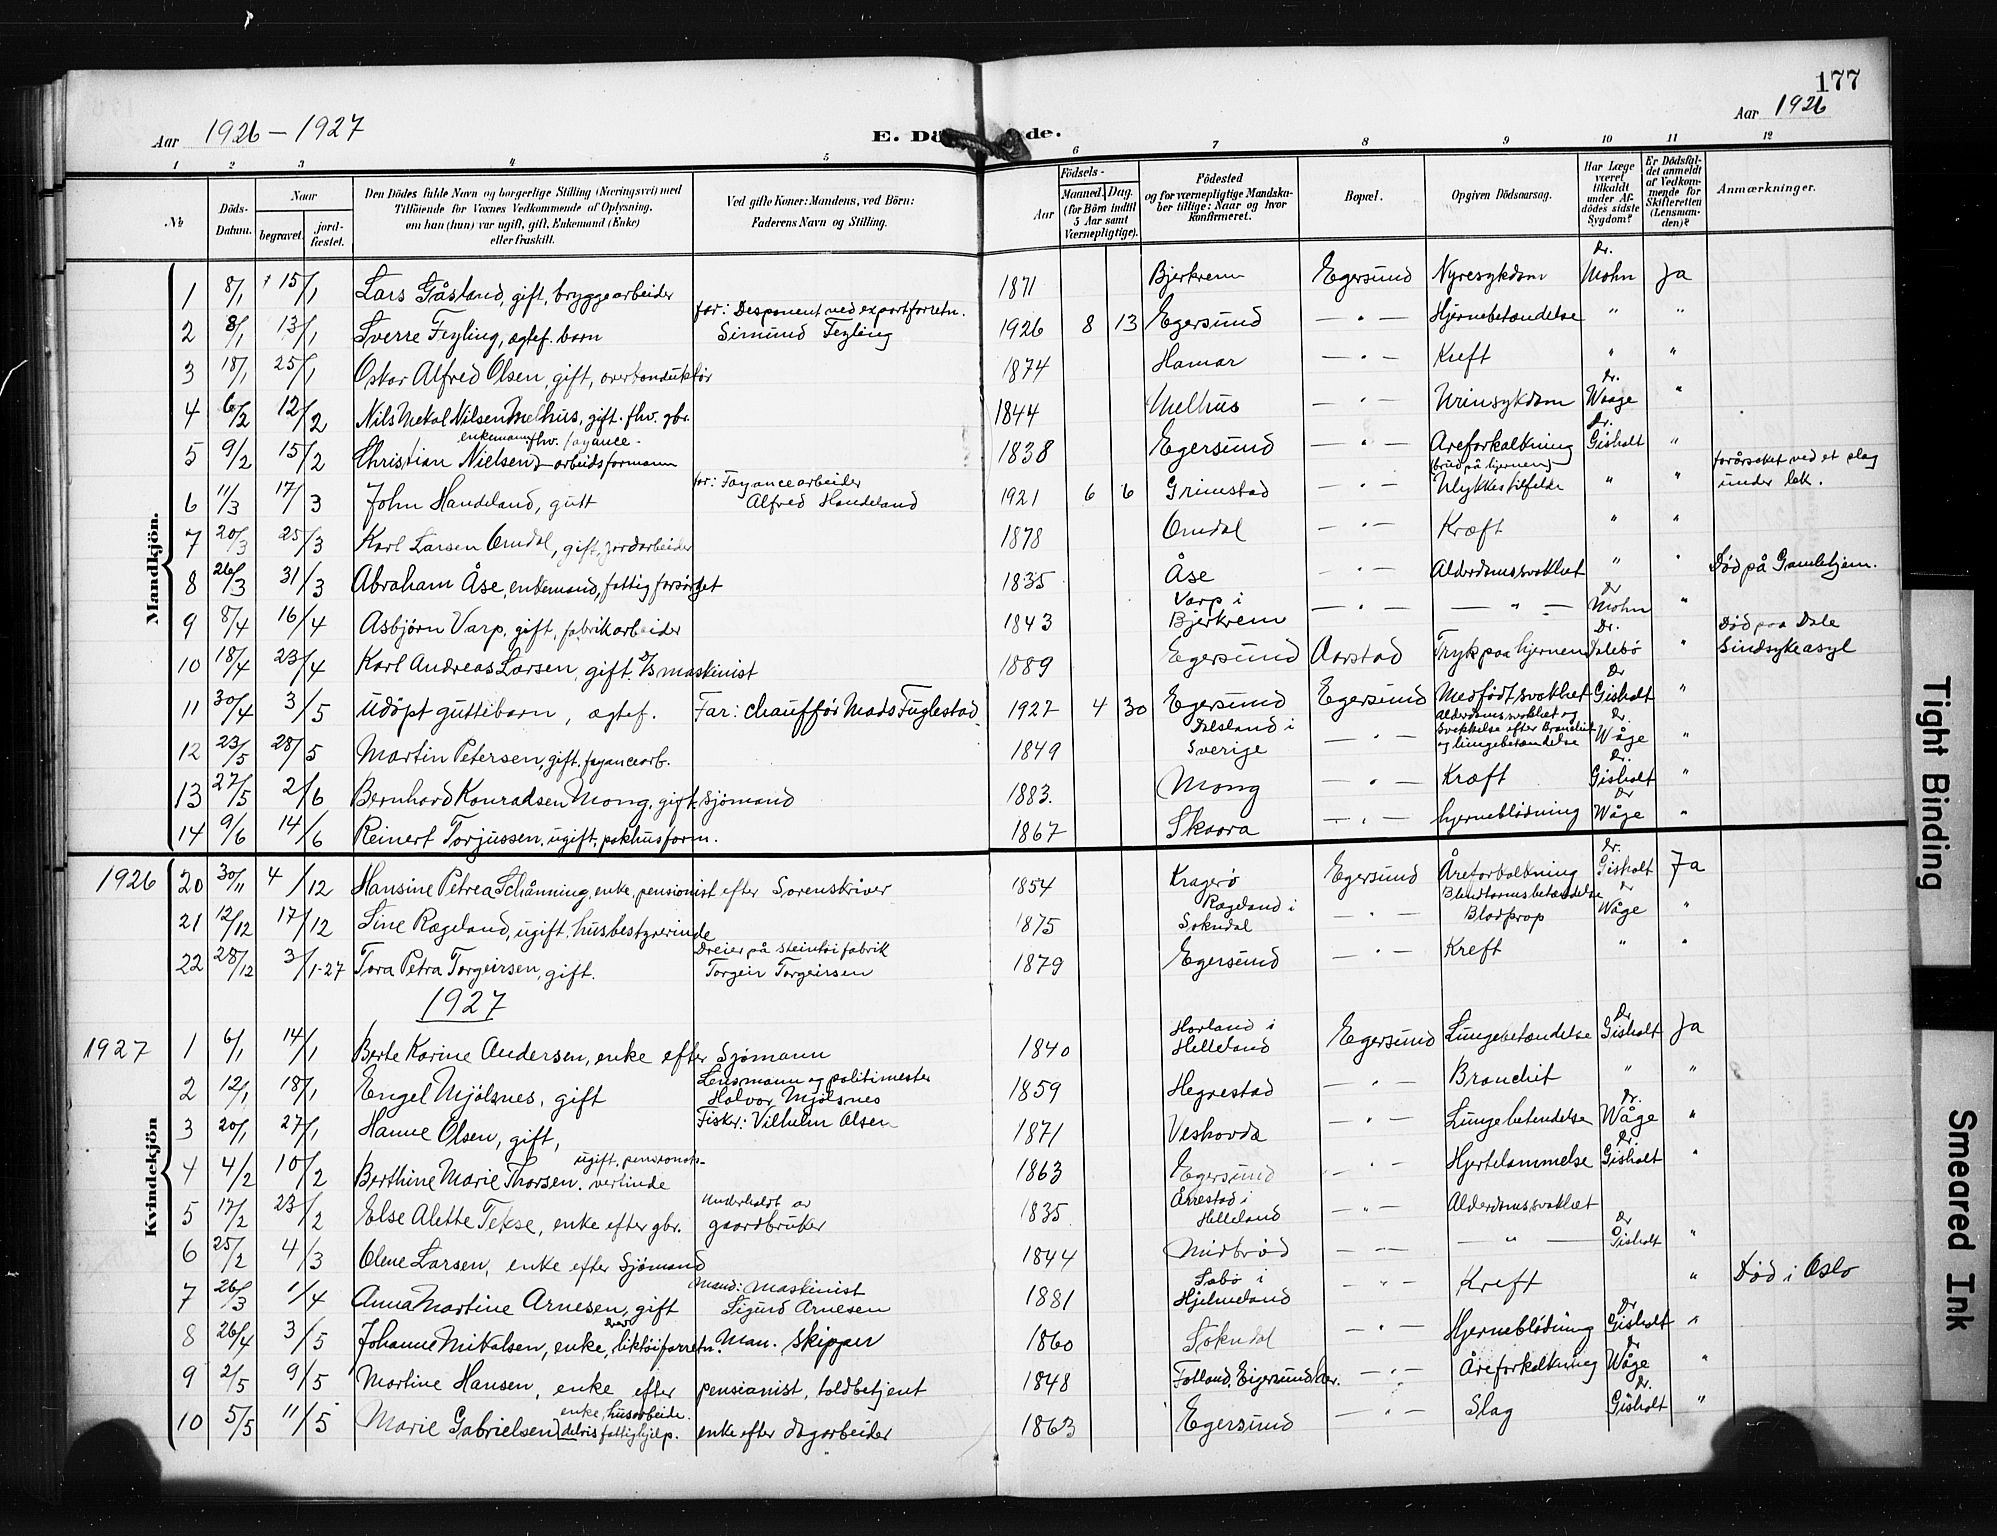 177
Aar 1926 - 1927
E. Dö de.
Aar 1926
1 2 3 4 5 6 7 8 9 10 11 12
No
Döds-Datum.
Naar
begravet.
jord-fæstet.
Den Dödes fulde Navn og borgerlige Stilling (Næringsvei) med
Tilföiende for Voxnes Vedkommende af Oplysning,
om han (hun) var ugift, gift, Enkemand (Enke)
eller fraskilt.
Ved gifte Koner: Mandens, ved Börn:
Faderens Navn og Stilling.
Födsels-
Aar
Maaned. Dag.
(for Börn indtil
5 Aar samt
Værnepligtige).
Födested
og for værnepligtige Mandska-
ber tillige: Naar og hvor
konfirmeret.
Bopæl.
Opgiven Dödsaarsag.
Har Læge
været
tilkaldt
under Af-
dödes sidste
Sygdom?
Er Dödsfal-
det anmeldt
af Vedkom-
mende for
Skifteretten
(Lensman-
den)?
Anmærkninger.
Mandkjön.
1 8/1 15/1 Lars Gåsland, gift, bryggearbeider 1871 Bjerkrem Egersund Nyresykdom Dr. Mohn Ja
2 8/1 13/1 Sverre Feyling, ægtef. barn far: Disponent ved exportforretn. Simund Feyling 1926 8 13 Egersund — " — Hjernebetændelse " "
3 18/1 25/1 Oskar Alfred Olsen, gift, overkonduktør 1874 Hamar — " — Kreft " "
4 6/2 12/2 Nils Mekal Nilsen Melhus, gift. fhv. gbr. 1844 Melhus — " — Urinsykdom Dr. Waage "
5 9/2 15/2 Christian Nielsen, enkemann fhv. fayance-arbeidsformann 1838 Egersund — " — Areforkalkning Dr. Gisholt "
6 11/3 17/3 John Handeland, gutt far: Fayancearbeider Alfred Handeland 1921 6 6 Grimstad — " — (brud på hjernen) Ulykkestilfelde " " forårsaket ved et slag under lek.
7 20/3 25/3 Karl Larsen Omdal, gift, jordarbeider 1878 Omdal — " — Kræft " "
8 26/3 31/3 Abraham Åse, enkemand, fattigforsørget 1835 Åse — " — Alderdomssvakhet " " Død på Gamlehjem.
9 8/4 16/4 Asbjörn Varp, gift, fabrikarbeider 1843 Varp i Bjerkrem — " — — " — Dr Mohn "
10 18/4 23/4 Karl Andreas Larsen, gift. D/S maskinist 1889 Egersund Aarstad Tryk paa hjernen Dr. Dalebö " Död paa Dale Sindsykeasyl
11 30/4 3/5 Udöpt guttebarn, ægtef. Far: chauffør Mads Fuglestad 1927 4 30 Egersund Egersund Medfödt svakhet Dr Gisholt "
12 23/5 28/5 Martin Petersen, gift. fayancearb. 1849 Dalsland i Sverige — " — Alderdomssvakhet og svekkelse efter Bronchit og lungebetændelse Dr. Wåge "
13 27/5 2/6 Bernhard Konradsen Mong, gift. sjömand 1883. Mong — " — Kræft Dr. Gisholt "
14 9/6 14/6 Reinert Torjussen, ugift, pakhusform. 1867 Skaara — " — hjerneblödning Dr Wåge "
1926
20 30/11 4/12 Hansine Petrea Schånning, enke, pensionist efter Sorenskriver 1854 Kragerö Egersund Åreforkalkning Dr. Gisholt Ja
21 12/12 17/12 Sine Rægeland, ugift. husbestyrerinde 1875 Rægeland i Sokndal — " — Blindtarmsbetændelse Blodprop Dr Wåge "
22 28/12 3/1-27 Tora Petra Torgeirsen, gift. Dreier på steintøifabrik Torgeir Torgeirsen 1879 Egersund — " — Kreft " "
1927
1927
Kvindekjön
1 6/1 14/1 Berte Karine Andersen, enke efter Sjømann 1840 Horland i Helleland Egersund Lungebetændelse Dr Gisholt Ja
2 12/1 18/1 Engel Mjölsnes, gift Lensmann og politimester Halvor Mjölsnes 1859 Hegrestad — " — Bronchit " "
3 20/1 27/1 Hanne Olsen, gift, Fisker: Vilhelm Olsen 1871 Veshovda — " — Lungebetendelse Dr. Wåge "
4 4/2 10/2 Berthine Marie Thorsen. ugift. pensionats-vertinde 1863 Egersund — " — Hjertelammelse Dr. Gisholt "
5 17/2 23/2 Else Alette Tekse, enke efter gbr. Underholdt av gaardbruker 1835 Årrestad i Helleland — " — Alderdomssvakhet
6 25/2 4/3 Olene Larsen, enke efter Sjömand 1844 Midbrød — " — — " — Dr Gisholt "
7 26/3 1/4 Anna Martine Arnesen, gift Mand: Maskinist Sigurd Arnesen 1881 Sabö i Hjelmeland " Kreft " Död i Oslo
8 26/4 3/5 Johanne Mikalsen, enke, liktöiforretn. Man. skipper 1860 Sokndal — " — Hjerneblödning Dr Gisholt "
9 2/5 9/5 Martine Hansen, enke efter pensianist, toldbetjent 1848 Fotland, Eigersund hr. — " — Åreforkalkning Dr Wåge "
10 5/5 11/5 Marie Gabrielsen, enke, husarbeide. delvis fattighjelp. enke efter dagarbeider 1863 Egersund — " — Slag Dr. Gisholt "
Tight Binding
Smeared Ink